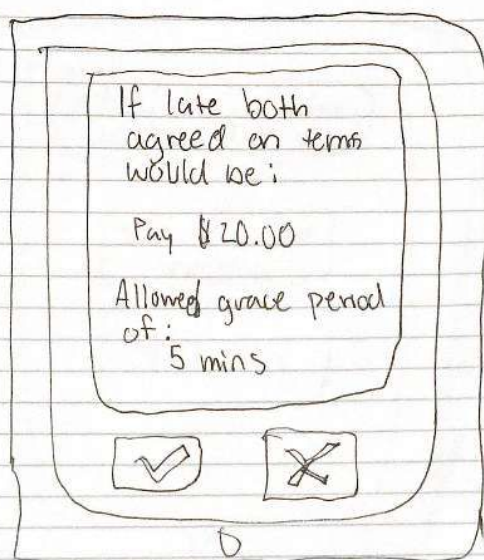 If late both
agreed on tems
would be:
Pay $20.00
Allowed grace period
of:
5 mins